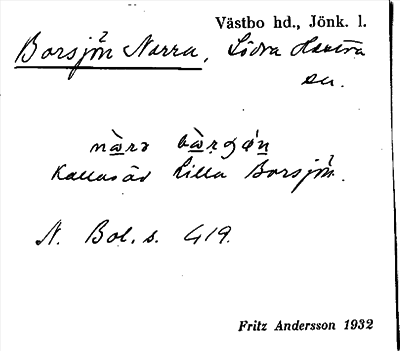 Västbo hd., Jönk. l.
Borsjön Norra, Södra Hestra
sn.
nàrə bàrʂøn
Kallas äv Lilla Borsjön.
N. Bol. s. 419.
Fritz Andersson 1932